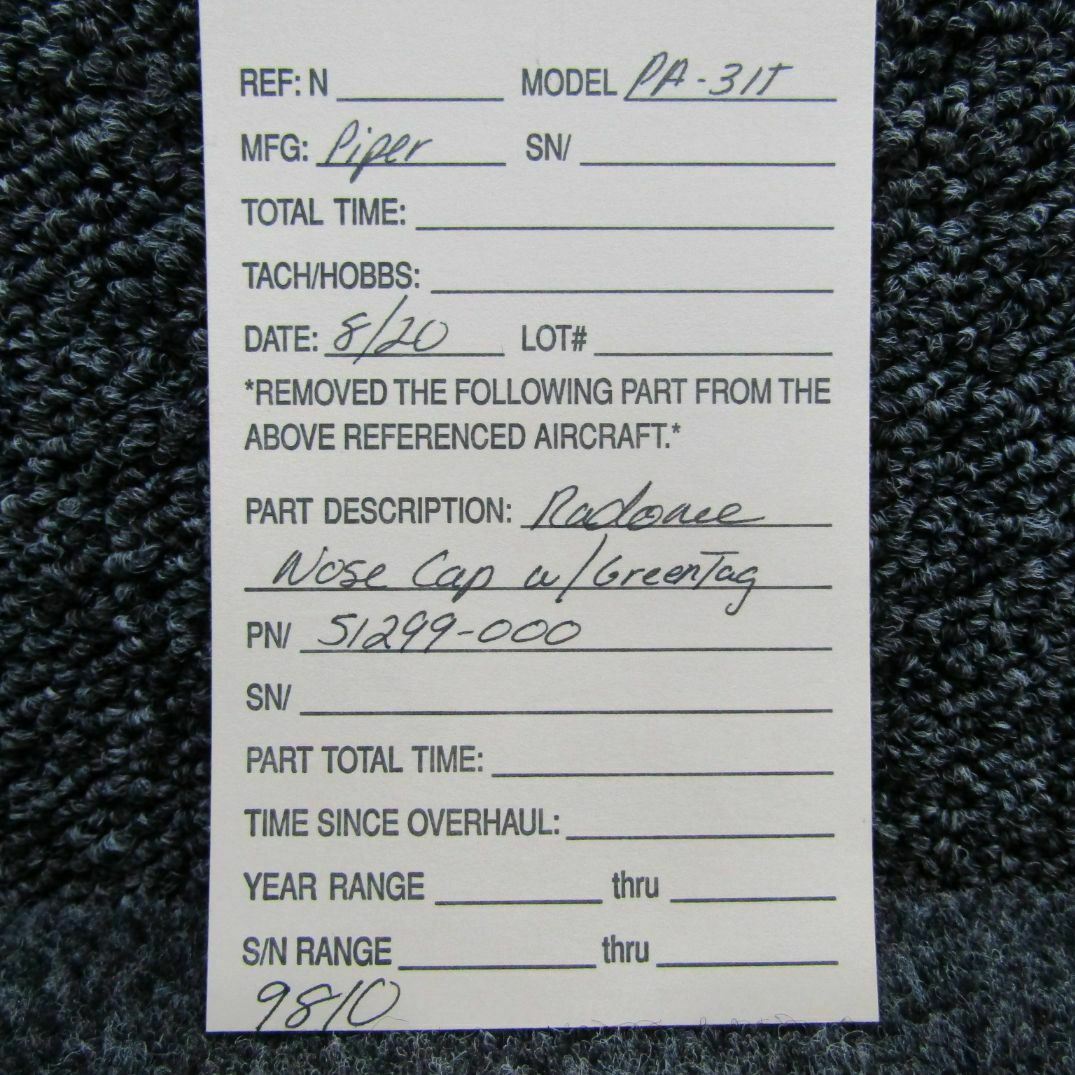 REF: N MODEL PA-31T
MFG: Piper SN/
TOTAL TIME:
TACH/HOBBS:
DATE: 8/20 LOT#
*REMOVED THE FOLLOWING PART FROM THE
ABOVE REFERENCED AIRCRAFT.*
PART DESCRIPTION: Radome
Nose Cap w/GreenTag
PN/ 51299-000
SN/
PART TOTAL TIME:
TIME SINCE OVERHAUL:
YEAR RANGE thru
S/N RANGE thru
9810